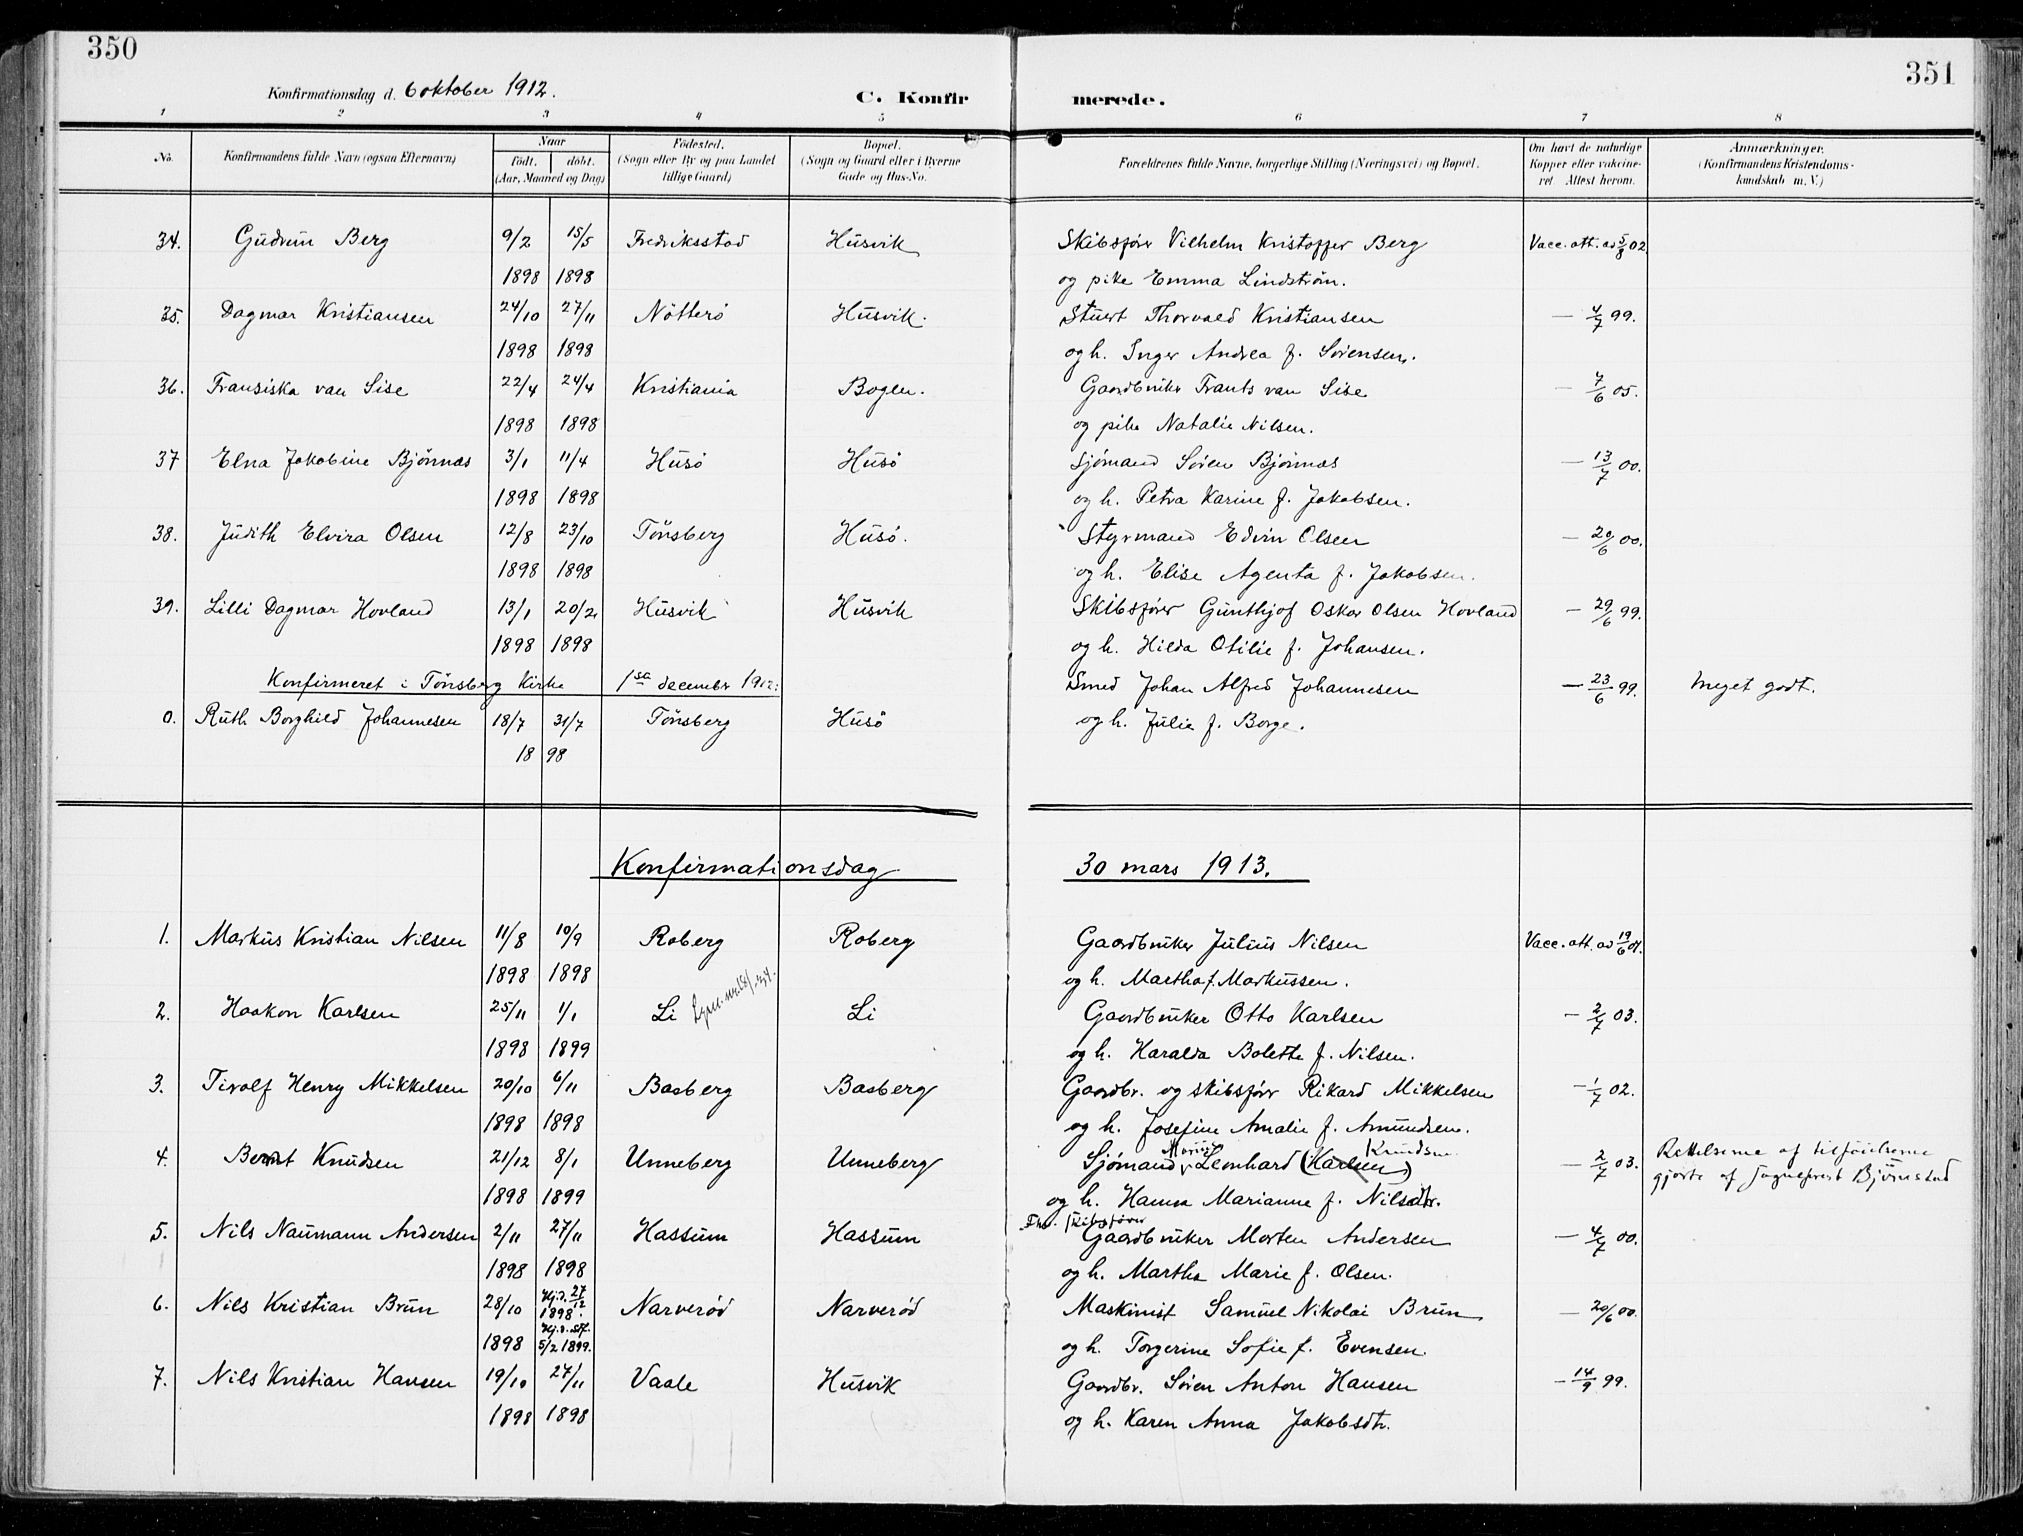 350
Konfirmationsdag d. 6 oktober 1912.
C. Konfir
merede.
351
1 2 3 4 5 6 7 8
No. Konfirmandens fulde Navn (ogsaa Efternavn) Naar født. døbt. (Aar, Maaned og Dag) Fødested. (Sogn eller By og paa Landet tillige Gaard) Bopæl. (Sogn og Gaard eller i Byerne Gade og Hus-No. Forældrenes fulde Navne, borgerlige Stilling (Næringsvei) og Bopæl. Om havt de naturlige Kopper eller vakcineret Attest herom. Anmærkninger. (Konfirmandens Kristendomskundskab m. V.)
34. Gudrun Berg 9/2 15/5 Fredriksstad Husvik Skibsfører Vilhelm Kristoffer Berg Vacc. att. av 5/8 02.
1898 1898 og pike Emma Lindstrøm.
35. Dagmar Kristiansen 24/10 27/11 Nötterö Husvik. Stuert Thorvald Kristiansen — 4/7 99.
1898 1898 og h. Inger Andrea f. Sørensen.
36. Fransiska van Sise 22/4 24/4 Kristiania Bogen. Gaardbruker Frants van Sise — 7/6 05.
1898 1898 og pike Natalie Nilsen.
37 Elna Jakobine Bjönnæs 3/1 11/4 Husö Husö Sjömand Sören Bjönnæs — 13/7 00.
1898 1898 og h. Petra Karine f. Jakobsen.
38. Judith Elvira Olsen 12/8 23/10 Tönsberg Husö. Styrmand Edvin Olsen — 20/6 00.
1898 1898 og h. Elise Agenta f. Jakobsen.
39. Lilli Dagmar Hovland 13/1 20/2 Husvik Husvik Skibsfører Gunthjof Oskar Olsen Hovland — 29/6 99.
1898 1898 og h. Hilda Otilie f. Johansen.
Konfirmeret i Tönsberg Kirke 1ste december 1912: Smed Johan Alfred Johannesen — 23/6 99. Meget godt.
0. Ruth Borghild Johannesen 18/7 31/7 Tönsberg Husö og h. Julie f. Borge.
18 98
Konfirmationsdag 30 mars 1913.
1. Markus Kristian Nilsen 11/8 10/9 Roberg Roberg Gaardbruker Julius Nilsen Vacc. att. av 19/6 01.
1898 1898 og h. Martha f. Markussen.
2. Haakon Karlsen 25/11 1/1 Li Li Gaardbruker Otto Karlsen — 2/7 03.
1898 1899 og h. Haralda Bolette f. Nilsen.
3. Tirolf Henry Mikkelsen 20/10 6/11 Basberg Basberg Gaardbr. og skibsfører Rikard Mikkelsen — 1/7 02.
1898 1898 og h. Josefine Amalie f. Amundsen.
4. Bernt Knudsen 21/12 8/1 Unneberg Unneberg Sjömand Leonhard (Karlsen) Knudsen — 2/7 03. Rettelserne af tilföielserne
1898 1899 og h. Hanna Marianne f. Nilsdtr. gjorte af Sogneprest Björnstad
5. Nils Naumann Andersen 2/11 27/11 Hassum Hassum Skibsfører Gaardbruker Morten Andersen — 4/7 00.
1898 1898 og h. Martha Marie f. Olsen.
6. Nils Kristian Brun 28/10 Hj.d. 27/12 1898. Narverød Narverød Maskinist Samuel Nikolai Brun — 20/6 00.
1898 Hj.d. stf. 5/2 1899. og h. Torgerine Sofie f. Evensen.
7. Nils Kristian Hansen 19/10 27/11 Vaale Husvik Gaardbr. Sören Anton Hansen — 14/9 99.
1898 1898 og h. Karen Anna Jakobsdtr.